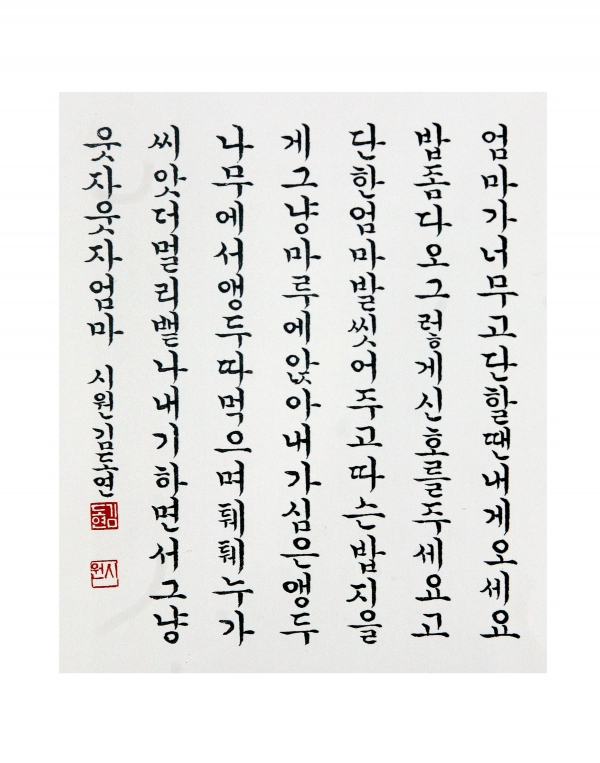 엄마가너무고단할땐내게오세요
밥좀다오그렇게신호를주세요고
단한엄마발씻어주고따슨밥지을
게그냥마루에앉아내가심은앵두
나무에서앵두따먹으며퉤퉤누가
씨앗더멀리뱉나내기하면서그냥
웃자웃자엄마 시원김도연
김도연
시원